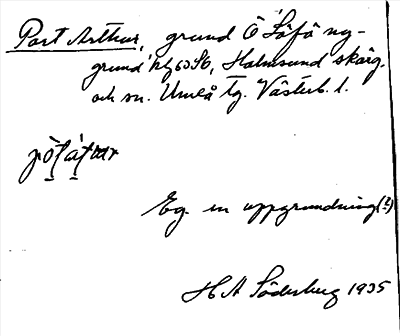 Port Arthur, grund Ö Låfö ny-
grund, Holmsund skärg.
och sn. Umeå tg. Västerb. l.
Eg. en uppgrundning (?)
H A Söderberg 1935